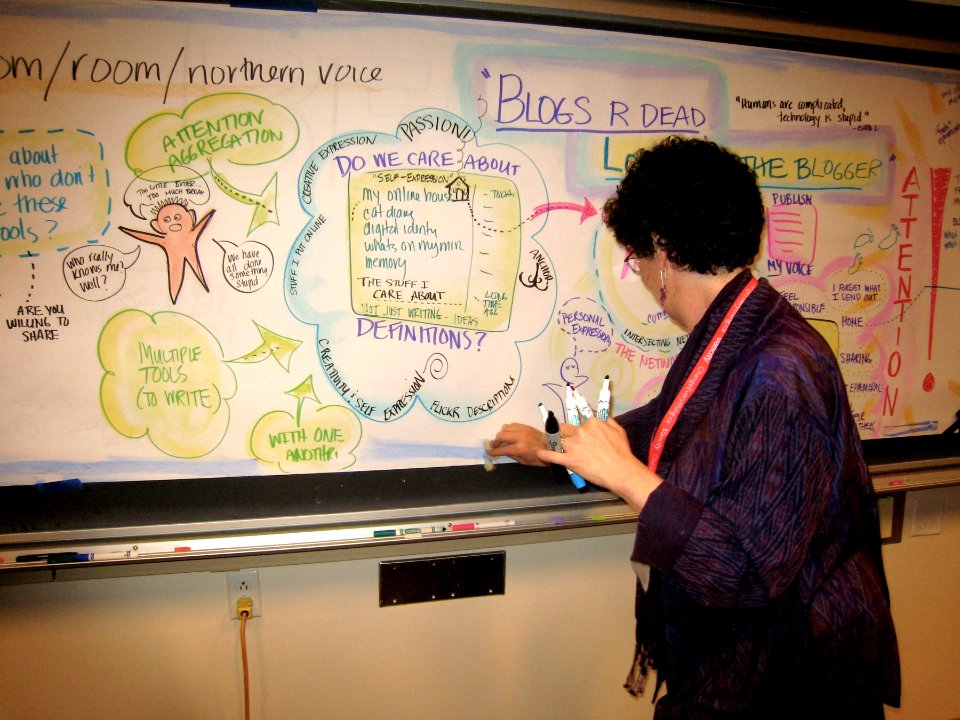 om/room/northern voice
about
who don't
these
ools?
ATTENTION
AGGREGATION
THE LITTLE ENTER...
TOO MUCH BREAK
WHO REALLY
KNOWS ME
WELL?
We have
all done
something
stupid
ARE YOU
WILLING TO
SHARE
MULTIPLE
TOOLS
(TO WRITE)
WITH ONE
ANOTHR
PASSION!
CREATIVE EXPRESSION
STUFF I PUT ONLINE
CREATIVITY & SELF EXPRESSION
FLICKR DESCRIPTION
ANCHOR
DO WE CARE ABOUT
"SELF-EXPRESSION"
my online hous
cat diary
digital identy
whats on my min
memory
THE STUFF I
CARE ABOUT
NOT JUST WRITING - IDEAS
- TODAY
LONG
TIME
AGO
DEFINITIONS?
"BLOGS R DEAD
"Humans are complicated,
technology is stupid"
- CHRIS L.
L
THE BLOGGER"
PUBLISH
MY VOICE
PERSONAL
EXPRESSION
INTERSECTING NE
THE NETW
FEEL
RESPONSIBLE
I FORGET WHAT
I SEND OUT...
HOME
SHARING
EPHEMERAL
ATTENTION!